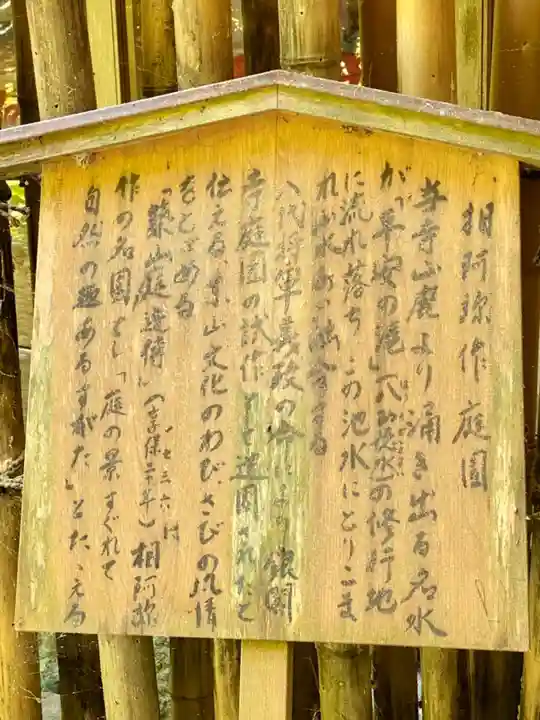 相阿弥作庭園
当寺山麓より涌き出る名水
が「平安の滝」
の修行地
に流れ落ち この池水にとりこま
れ山水 融合する
八代将軍義政の命により 銀閣
寺庭園の試作として造園されたと
伝える、東山文化のわび、さびの風情
をとどめる
「築山庭造傳」(享保二十年)相阿弥
一七三六 は
作の名園とし「庭の景すぐれて
自然の趣あるすがた」とたゝえる